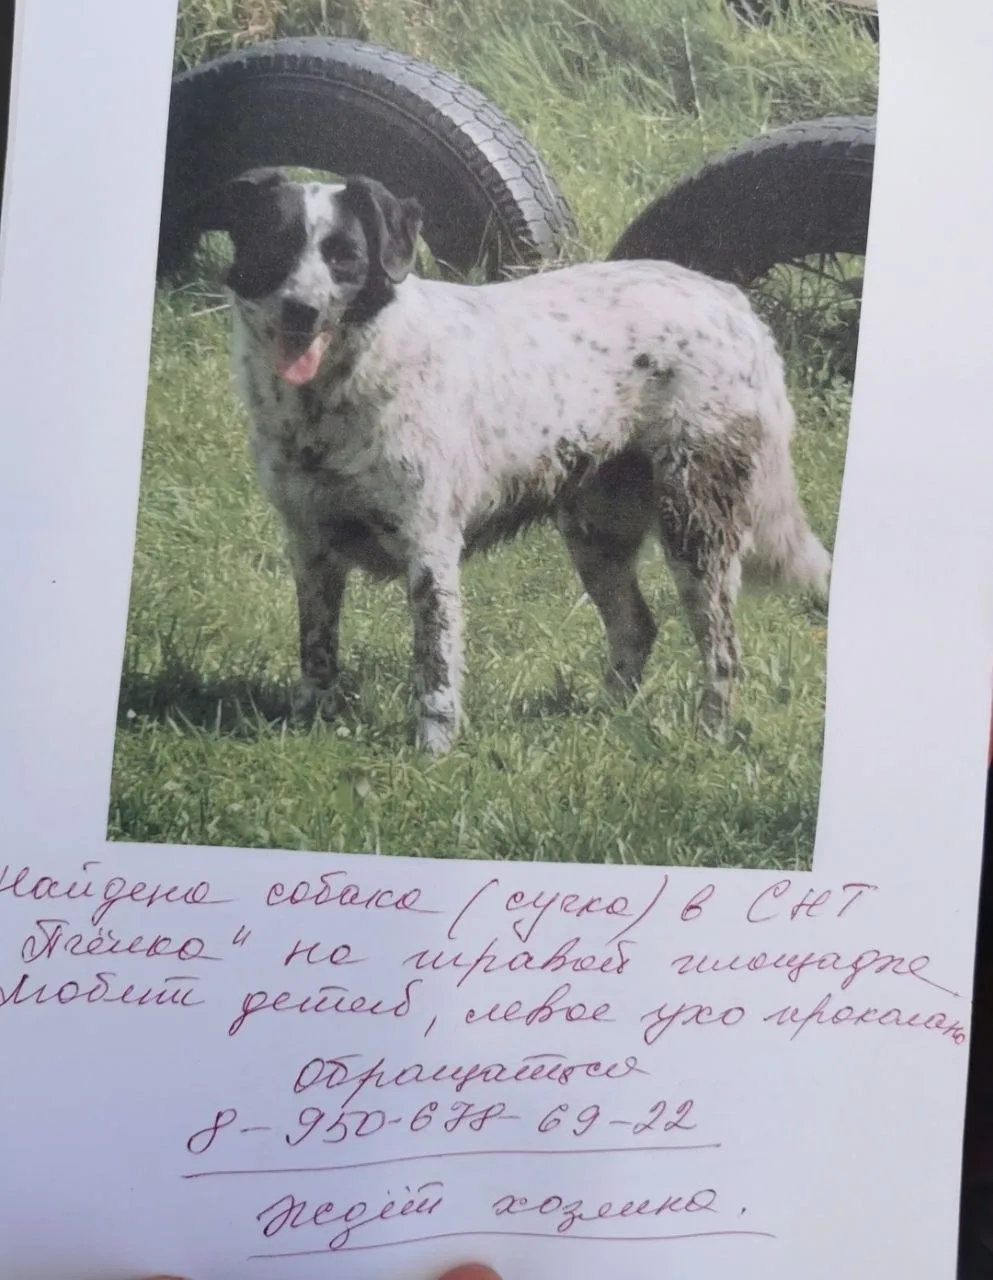 Найдена собака (сучка) в СНТ
Пчёлка" на правой площадке
Любит детей, левое ухо проколано
Обращаться
8-950-678-69-22
Ждёт хозяина.